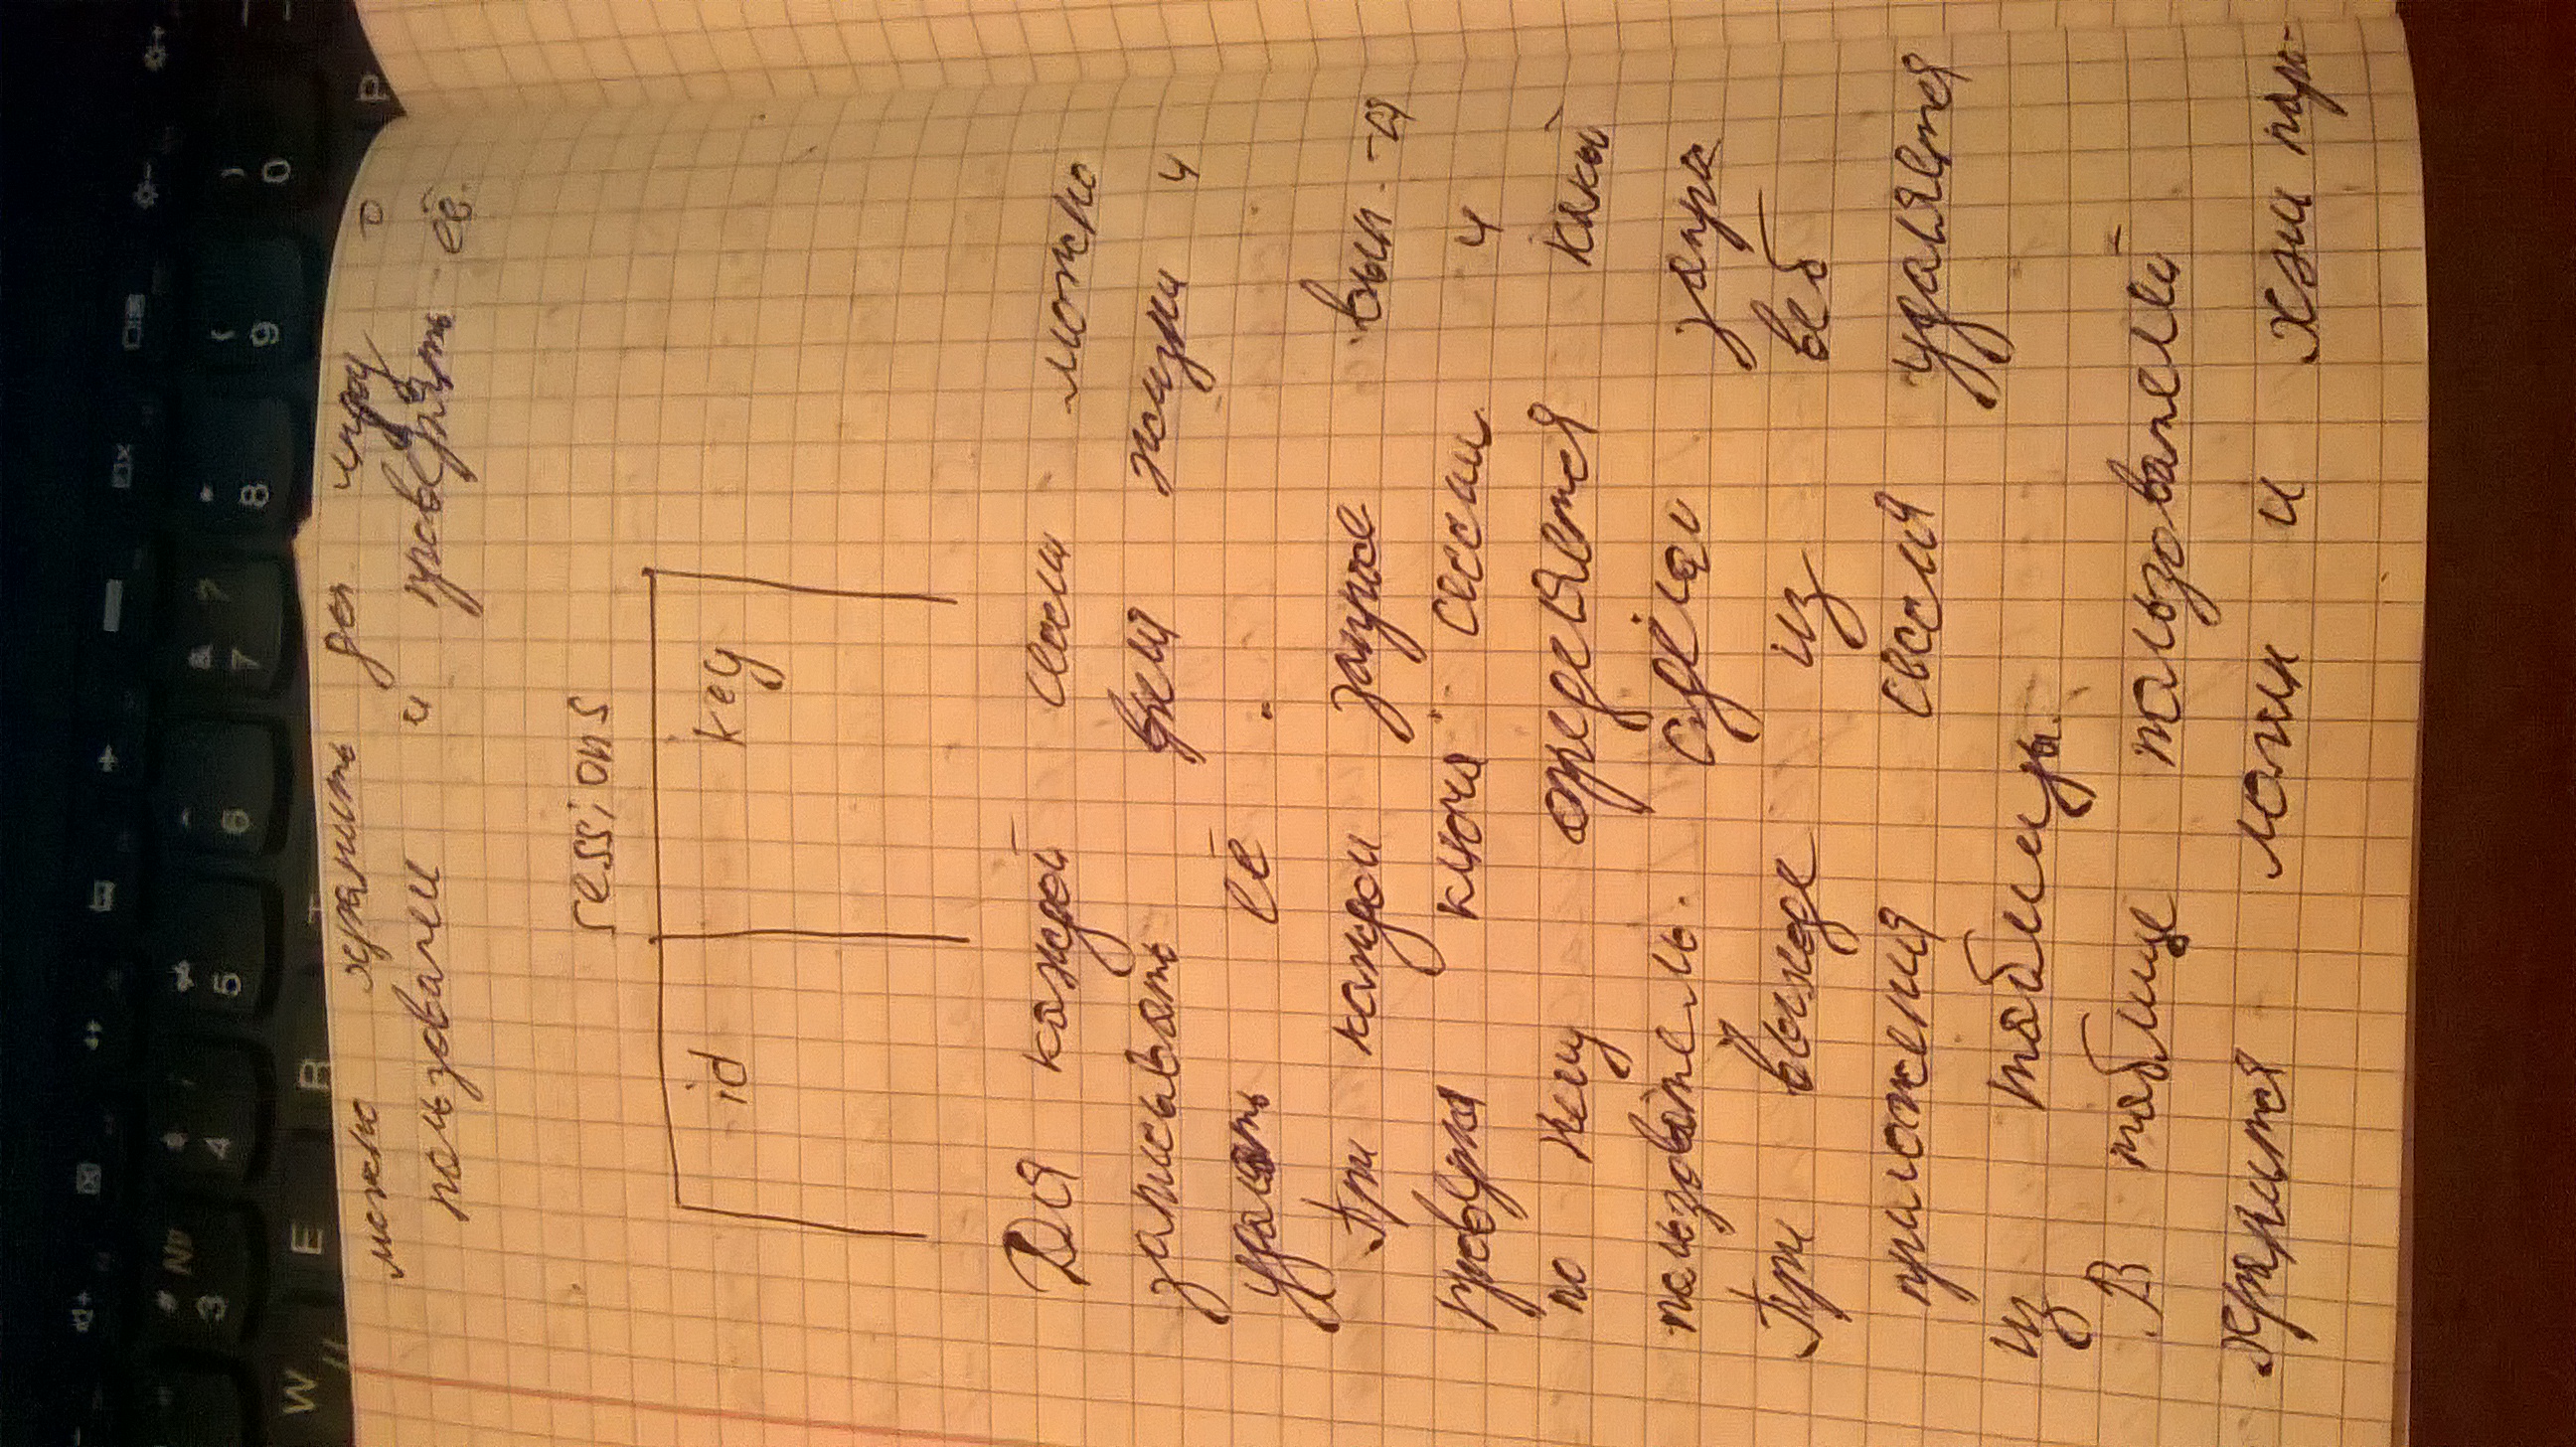 # № 3 $ 4 5 6 & ? 7 8 ( 9 ) 0
W E R P
можно хранить доп инфу о
пользователе и проверять её.
sessions
id key
Для каждой сессии можно
записывать время жизни и
удалять её.
При каждом запросе вып-ся
проверка ключа сессии и
по нему определяется какой
пользователь сделал запрос
При выходе из веб
приложения сессия удаляется
из таблицы.
В таблице пользователей
хранится логин и хэш паро-